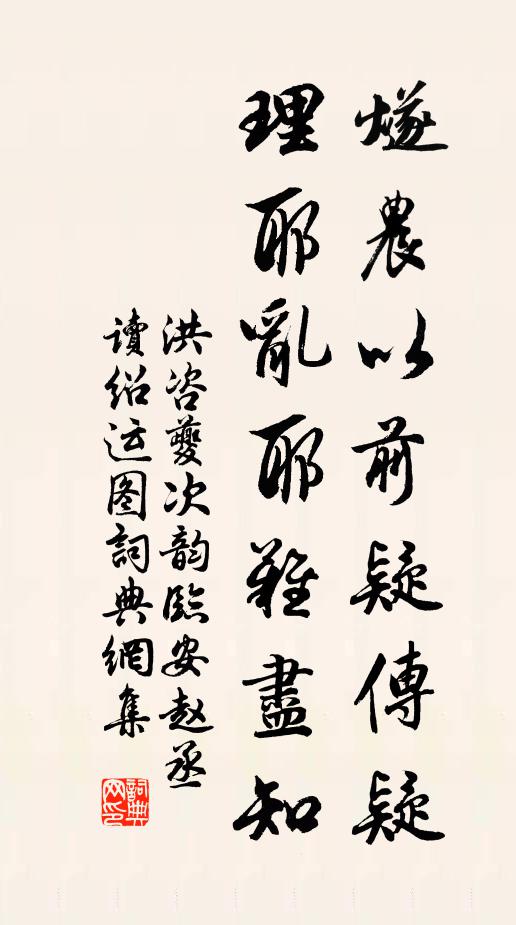 燧農以前疑傳疑
理耶亂耶難盡知
洪咨夔次韵臨安赵丞
讀紹运图詞典網集
詞典网印